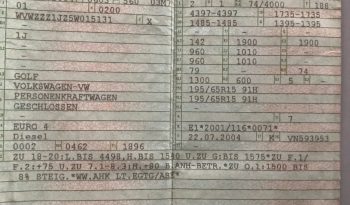 01 0200
2 74/4000 188
WVWZZZ1JZ5W015131 X
4397-4397 1735-1735
1485-1485 1395-1395
1J
142 1900
960 1010
960 1010
79 74
1300 600 5
GOLF
VOLKSWAGEN-VW
PERSONENKRAFTWAGEN
GESCHLOSSEN
195/65R15 91H
195/65R15 91H
7
EURO 4
E1*2001/116*0071*
Diesel
22.07.2004 K VN593953
0002 0462 1896
ZU 18-20:L.BIS 4498,H.BIS 1530 U.ZU G:BIS 1575*ZU F.1/
F.2:+75 U.ZU 7.1-8.3:M.+80 B.ANH-BETR.*ZU O.1:1500 BIS
8% STEIG.*WW.AHK LT.EGTG/ABE*